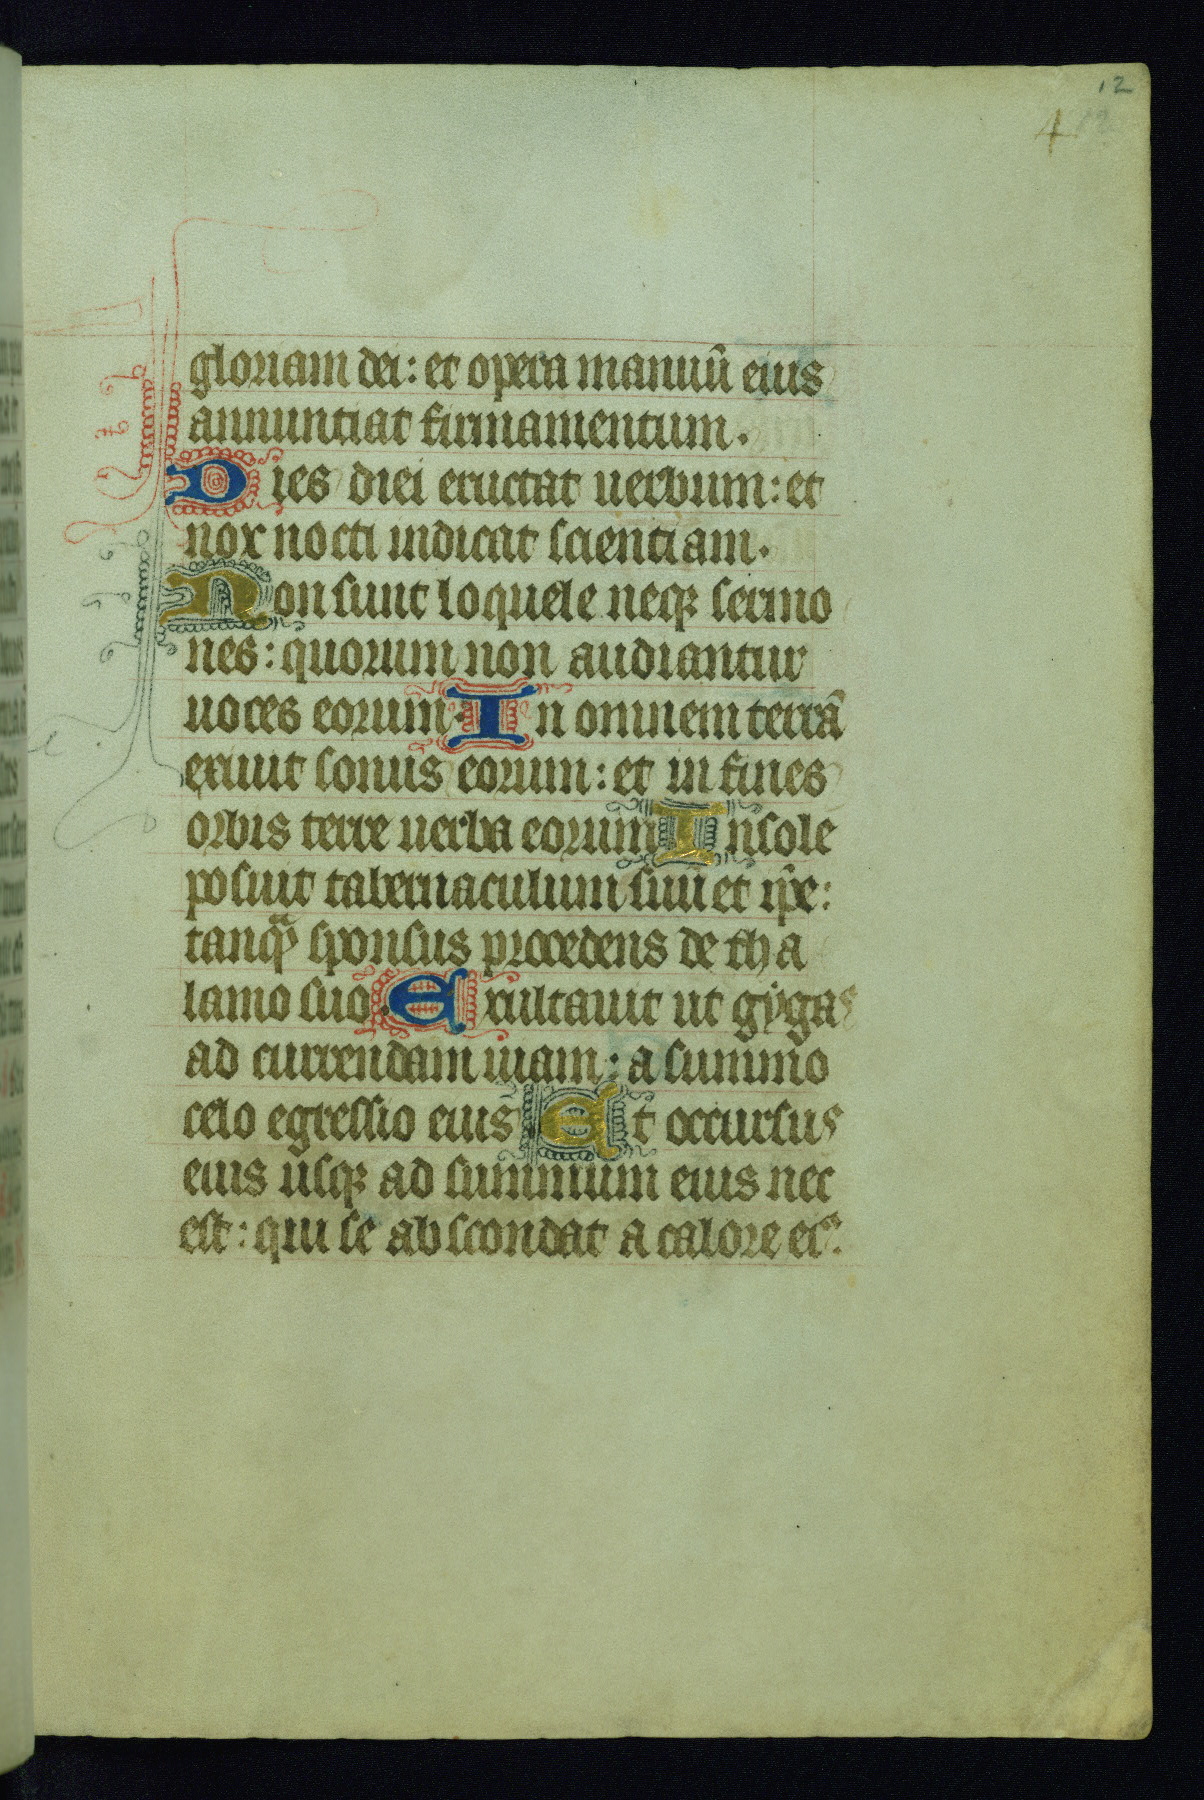 12
4 12
gloriam dei: et opera manuū eius
annuntiat firmamentum.
Dies diei eructat uerbum: et
nox nocti indicat scientiam.
Non sunt loquele neqꝫ sermo
nes: quorum non audiantur
uoces eorum. In omnem terrā
exiuit sonus eorum: et in fines
orbis terre uerba eorum In sole
posuit tabernaculum suū et ip̄e:
tanqᷓ sponsus procedens de tha
lamo suo. Exultauit ut gygas
ad currendam uiam: a summo
celo egressio eius Et occursus
eius usqꝫ ad summum eius nec
est: qui se abscondat a calore eiꝰ.